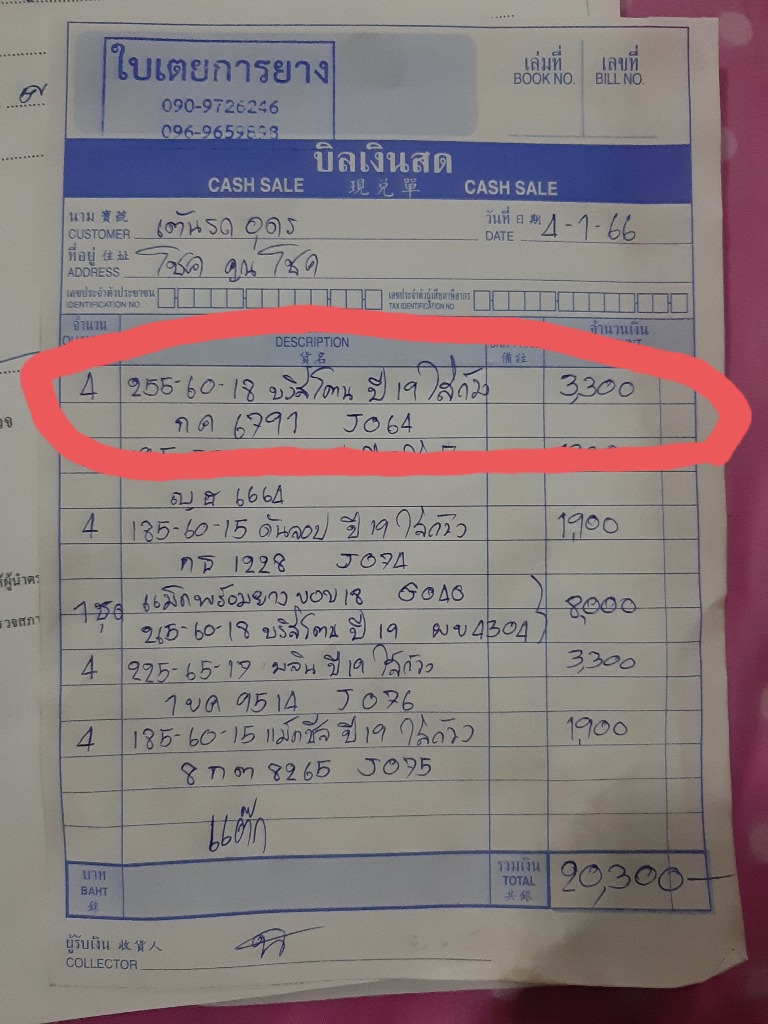 ใบเตยการยาง
090-9726246
096-9659898
เล่มที่ เลขที่
BOOK NO. BILL NO.
บิลเงินสด
CASH SALE 現兌單 CASH SALE
นาม 寶號 วันที่ 日期
CUSTOMER เต้นรถ อุดร DATE 4-1-66
ที่อยู่ 住址
ADDRESS โชค คูณ โชค
เลขประจำตัวประชาชน เลขประจำตัวผู้เสียภาษีอากร
IDENTIFICATION NO. TAX IDENTIFICATION NO.
จำนวน จำนวนเงิน
DESCRIPTION
貨名 備註
4 255-60-18 บริสโตน ปี 19 ใส่ถ้วง 3,300
กค 6791 J064
ญฮ 6664
4 185-60-15 ดันลอป ปี 19 ใส่ถ้วง 1,900
กธ 1228 J074
1 ชุด แม็กพร้อมยาง ขอบ 18 G040 8,000
265-60-18 บริสโตน ปี 19 ผข 4304
4 225-65-17 มลิน ปี 19 ใส่ถ้วง 3,300
1ขค 9514 J076
4 185-60-15 แม็กซีส ปี 19 ใส่ถ้วง 1,900
8กต 8265 J075
แต๊ก
บาท รวมเงิน
BAHT TOTAL 20,300
銖 共銀
ผู้รับเงิน 收貨人
COLLECTOR